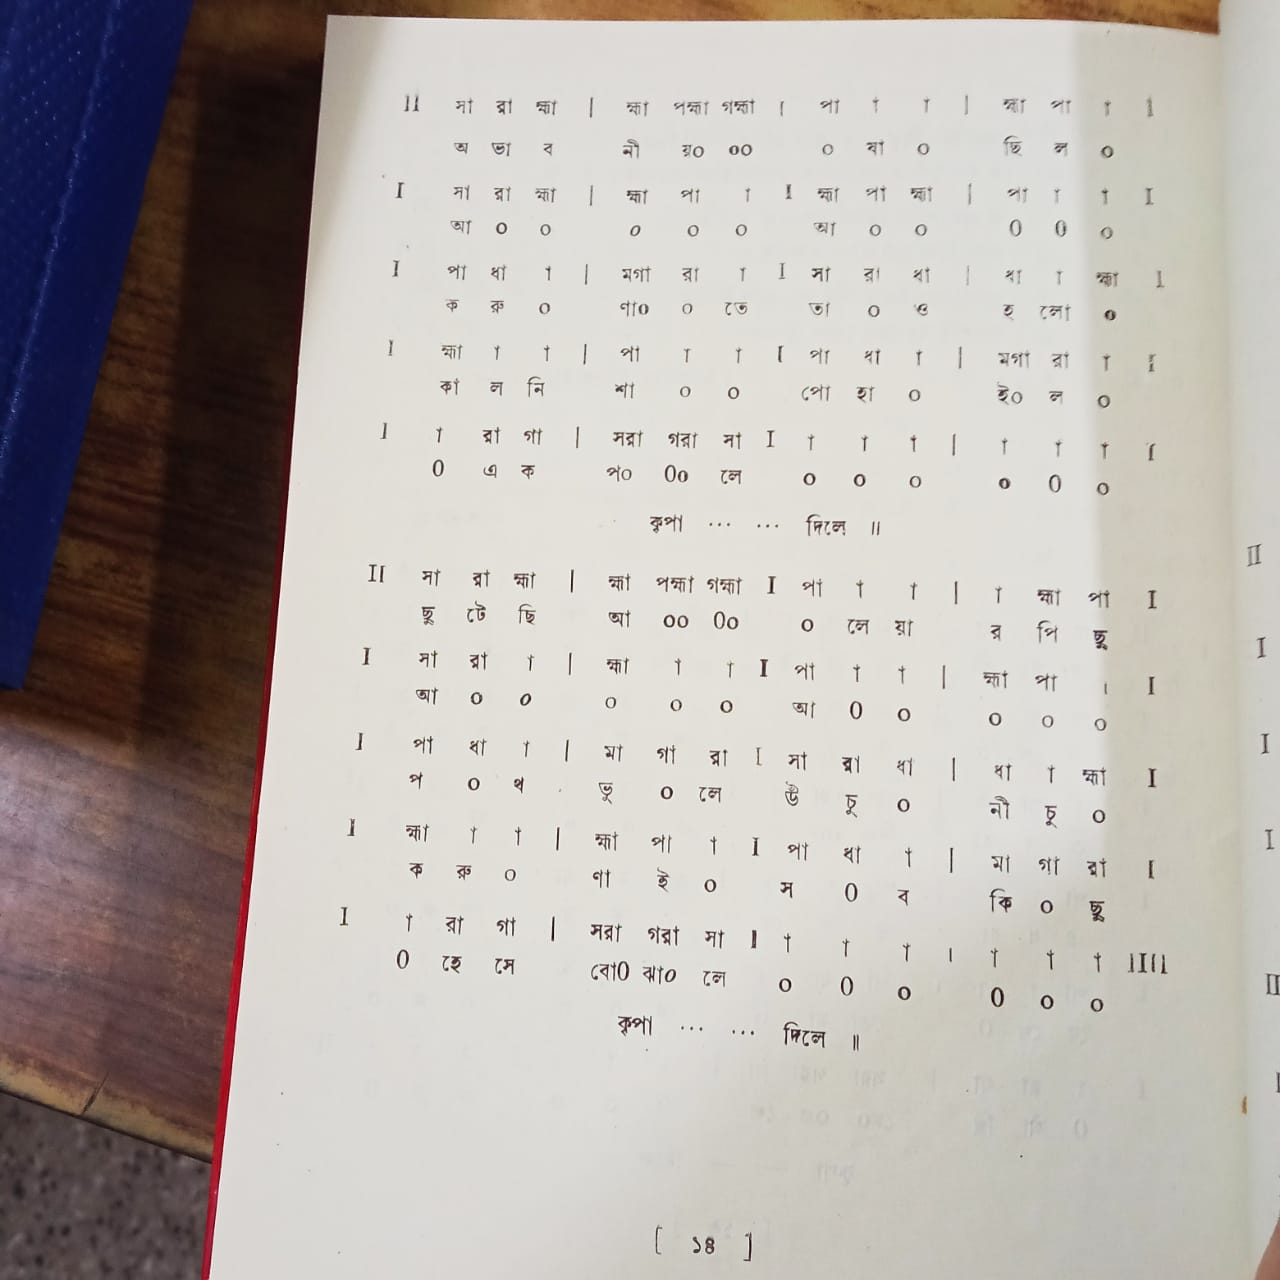 II সা রা হ্মা | হ্মা পহ্মা গহ্মা | পা া া | হ্মা পা া I
অ ভা ব নী য়০ ০০ ০ যা ০ ছি ল ০
I সা রা হ্মা | হ্মা পা া I হ্মা পা হ্মা | পা া া I
আ ০ ০ ০ ০ ০ আ ০ ০ ০ ০ ০
I পা ধা া | মগা রা া I সা রা ধা | ধা া হ্মা I
ক রু ০ ণা০ ০ তে তা ০ ও হ লো ০
I হ্মা া া | পা া া I পা ধা া | মগা রা া I
কা ল নি শা ০ ০ পো হা ০ ই০ ল ০
I া রা গা | সরা গরা সা I া া া | া া া I
০ এ ক প০ ০০ লে ০ ০ ০ ০ ০ ০
কৃপা ... ... দিলে ॥
II সা রা হ্মা | হ্মা পহ্মা গহ্মা I পা া া | া হ্মা পা I
ছু টে ছি আ ০০ ০০ ০ লে য়া র পি ছু
I সা রা া | হ্মা া া I পা া া | হ্মা পা । I
আ ০ ০ ০ ০ ০ আ ০ ০ ০ ০ ০
I পা ধা া | মা গা রা I সা রা ধা | ধা া হ্মা I
প ০ থ ভু ০ লে উঁ চু ০ নী চু ০
I হ্মা া া | হ্মা পা া I পা ধা া | মা গা রা I
ক রু ০ ণা ই ০ স ০ ব কি ০ ছু
I া রা গা | সরা গরা সা I া া া । া া া IIII
০ হে সে বো০ ঝা০ লে ০ ০ ০ ০ ০ ০
কৃপা ... ... দিলে ॥
[ ১৪ ]